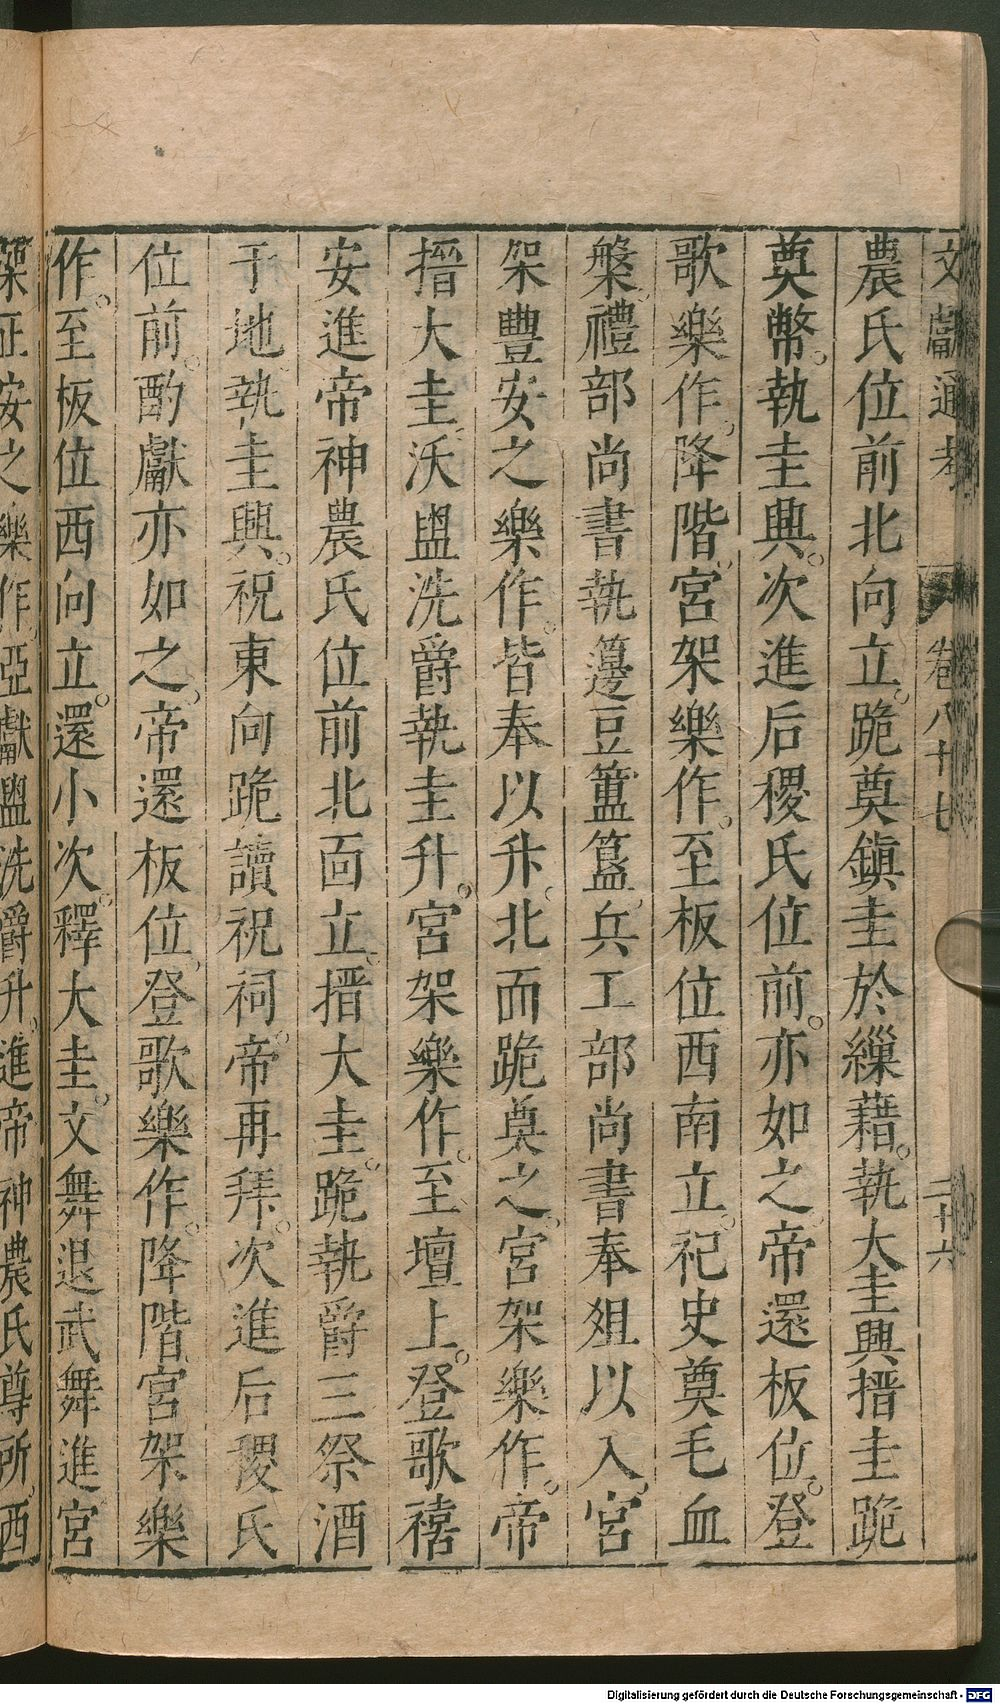 文獻通考 卷八十七 二十六
農氏位前北向立。跪奠鎮圭於繅藉。執大圭興搢圭跪
奠幣。執圭興。次進后稷氏位前。亦如之。帝還板位。登
歌樂作。降階。宮架樂作。至板位西南立。祀史奠毛血
槃。禮部尚書執籩豆簠簋。兵工部尚書奉俎以入。宮
架豐安之樂作。皆奉以升。北面跪奠之。宮架樂作。帝
搢大圭。沃盥洗爵執圭升。宮架樂作。至壇上。登歌禧
安進帝神農氏位前北面立。搢大圭。跪執爵三祭酒
于地。執圭興。祝東向跪讀祝祠。帝再拜。次進后稷氏
位前。酌獻亦如之。帝還板位。登歌樂作。降階宮架樂
作。至板位西向立。還小次。釋大圭。文舞退武舞進宮
架正安之樂作。亞獻盥洗爵升。進帝神農氏尊所。西
Digitalisierung gefördert durch die Deutsche Forschungsgemeinschaft - DFG